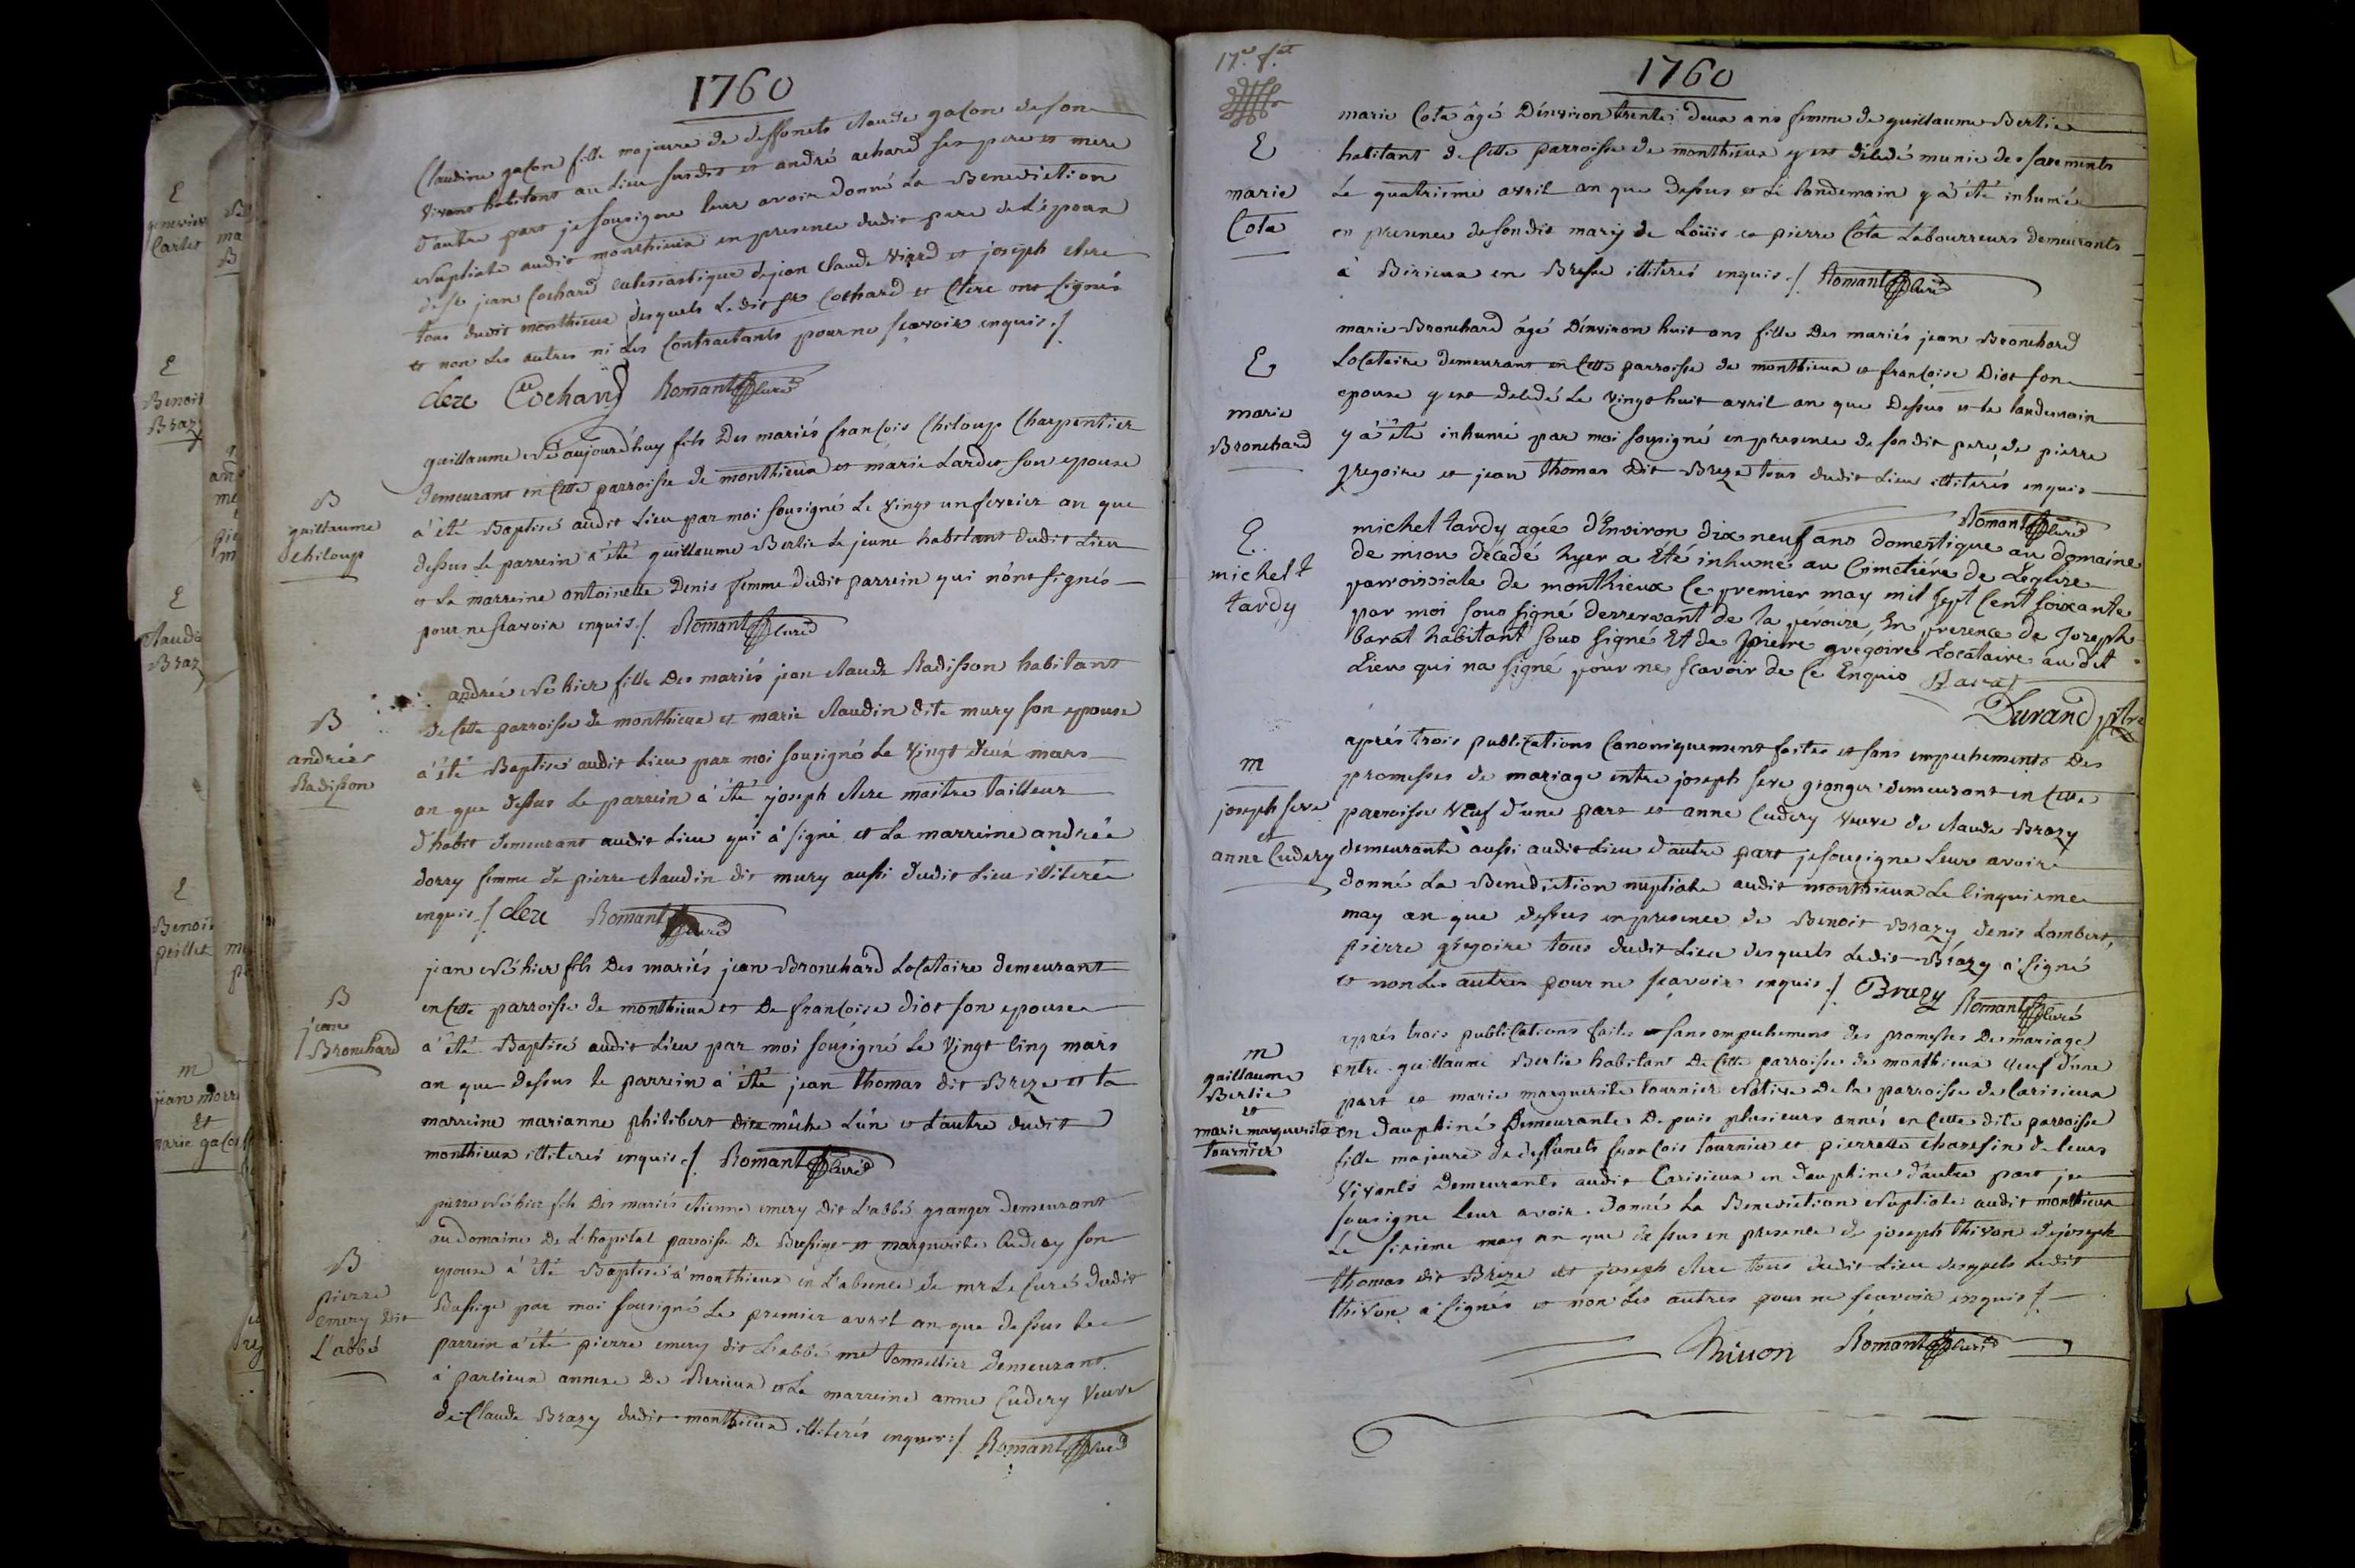 1760
Claudine gacon fille majeure de deffunets claude gacon de son
vivant habitant au Lieu susdit et andré achard ses pere et mere
d'autre part je sousigne leur avoir donné La Benediction
Nuptiale audit monthieux en presence dudit pere de L'epoux
de sr jean Cochard eclesiastique de jean claude Viard et joseph clere
tous dudit monthieux desquels Ledit sr Cochard et Clere ont signés
et non Les autres ni Les Contractants pour ne scavoir enquis ./.
Clere Cochard Romant Curé
B
guillaume
chiloup
guillaume Né aujourd'huy fils Des mariés francois Chiloup Charpentier
demeurant en Cette parroisse de monthieux et marie Lardet son epouse
à été Baptisé audit Lieu par moi sousigné Le Vingt un fevrier an que
dessus Le parrein a été guillaume Berlie Le jeune habitant dudit Lieu
et La marreine antoinette Denis femme dudit parrein qui n'ont signés
pour ne scavoir enquis ./. Romant Curé
B
andrée
Radisson
andrée Né hier fille Des mariés jean claude Radisson habitant
de Cette parroisse de monthieux et marie claudin dite mury son epouse
à été Baptisé audit Lieu par moi sousigné Le Vingt deux mars
an que dessus Le parrein à été joseph clere maitre tailleur
d'habit demeurant audit Lieu qui à signé et La marreine andrée
dorry femme de pierre claudin dit mury aussi dudit Lieu illiterée
enquis ./. Clere Romant Curé
B
jean
Bronchard
jean Né hier fils Des mariés jean Bronchard Locataire demeurant
en Cette parroisse de monthieux et De francoise diot son epouse
à été Baptisé audit Lieu par moi sousigné Le Vingt Cinq mars
an que dessus le parrein à été jean thomas dit Breze et la
marreine marianne philibert dite mûche L'ún et L'autre dudit
monthieux illiterés enquis ./. Romant Curé
B
pierre
emery dit
L'abbé
pierre Né hier fils Des mariés etienne emery dit L'abbé granger demeurant
au domaine De L'hopital parroisse De Bussige et marguerite Cudery son
epouse à été Baptisé à monthieux en L'absence de mr Le Curé dudit
Bussige par moi sousigné Le premier avril an que dessus Le
parrein a été pierre emery dit L'abbé me tonnellier demeurant
à parlieux annexe De Rerieux et La marreine anne Cudery Veuve
de Claude Brazy dudit monthieux illiterés enquis ./. Romant Curé
17e f.et
1760
E
marie
Cota
marie Cota âgé D'environ trente deux ans femme de guillaume Berlie
habitant de Cette parroisse de monthieux y est décedé munie des sacrements
Le quatrieme avril an que dessus et Le landemain y à été inhumée
en presence de son dit mary de Loüis et pierre Cota Labourreurs demeurants
à Birieux en Bresse illiterés enquis ./. Romant Curé
E
marie
Bronchard
marie Bronchard âgé D'environ huit ans fille Des mariés jean Bronchard
Locataire demeurant en Cette parroisse de monthieux et francoise Diot son
epouse y est decedé Le Vingt huit avril an que Dessus et le landemain
y à été inhumé par moi sousigné en presence de son dit pere, de pierre
gregoire et jean thomas dit Breze tous dudit Lieu illiterés enquis
Romant Curé
E
michel
tardy
michel tardy agée d'Environ dix neuf ans domestique au domaine
de mion décedé hyer a Été inhumé au Cimetière de Léglise
parroissiale de monthieux Ce premier may mil sept Cent soixante
par moi sous signé desservant de la péroire, En presence de Joseph
barat habitant sous signé Et de pierre grégoire Locataire au dit
Lieu qui na signé pour ne scavoir de Ce Enquis Barat
Durand ptre
m
joseph seve
et
anne Cudery
aprés trois publications Canoniquement faites et sans empechements Des
promesses de mariage entre joseph seve granger demeurant en Cette
parroisse Veuf d'une part et anne Cudery Veuve de claude Brazy
demeurante aussi audit Lieu d'autre part je sousigne Leur avoir
donné La Benediction nuptiale audit monthieux Le Cinquieme
may an que dessus en presence de Benoit Brazy denis Lambert,
pierre grégoire tous dudit Lieu desquels Ledit Brazy a signé
et non Les autres pour ne scavoir enquis ./. Brazy Romant Curé
m
guillaume
Berlie
et
marie marguerite
tournier
aprés trois publications faites et sans empechement des promesses De mariage
entre guillaume Berlie habitant De Cette parroisse de monthieux Veuf d'une
part et marie marguerite tournier Native De la parroisse de Carisieux
en dauphiné Demeurante Depuis plusieurs anneés en Cette dite parroisse
fille majeure de deffunets francois tournier et pierrette charesin de leurs
Vivants Demeurants audit Carisieux en dauphine d'autre part je
sousigne Leur avoir donné La Benediction Nuptiale audit monthieux
Le sixieme may an que dessus en presence de joseph thivon de joseph
thomas dit Breze et joseph clere tous dudit Lieu desquels Ledit
thivon à signés et non Les autres pour ne scavoir enquis ./.
Thivon Romant Curé